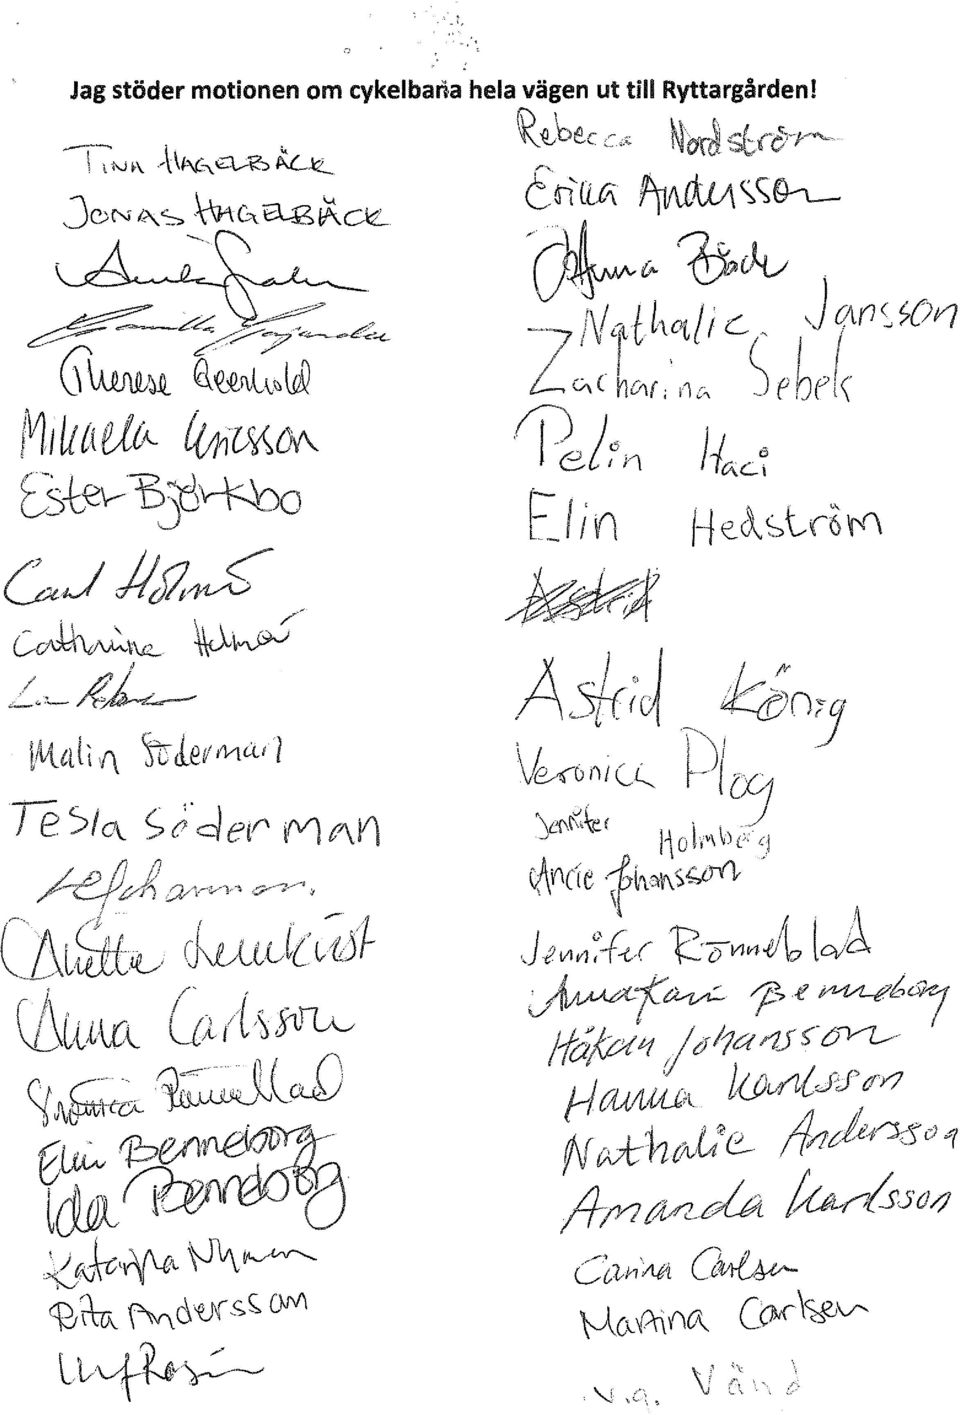 Jag stöder motionen om cykelbana hela vägen ut till Ryttargården!
TINA HAGELBÄCK
JONAS HAGELBÄCK
Camilla
Therese
Mikaela Ericsson
Ester Björkbo
Carl Holmå
Catharina Holmå
Malin Söderman
Tesla Söderman
Anette Lennkvist
Anna Carlsson
Rönneblad
Elin Benneborg
Ida Benneborg
Katarina Nyman
Rita Andersson
Ulf Rosin
Rebecca Nordström
Erika Andersson
Anna Bäck
Nathalie Jansson
Zacharina Sebek
Pelin Haci
Elin Hedström
Astrid
Astrid König
Veronica Plog
Jennifer Holmberg
Ancie Johansson
Jennifer Rönneblad
AnnaKarin Benneborg
Håkan Johansson
Hanna Karlsson
Nathalie Andersson
Amanda Karlsson
Carina Carlsen
Martina Carlsen
v.g. Vänd